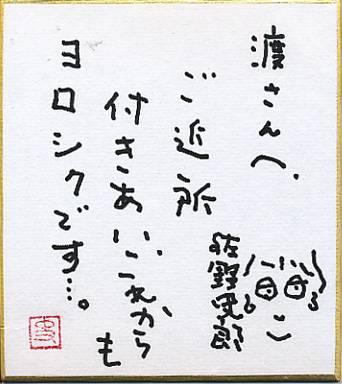 渡さんへ.
ご近所
付きあい、これからも
ヨロシクです…。
佐野史郎
史